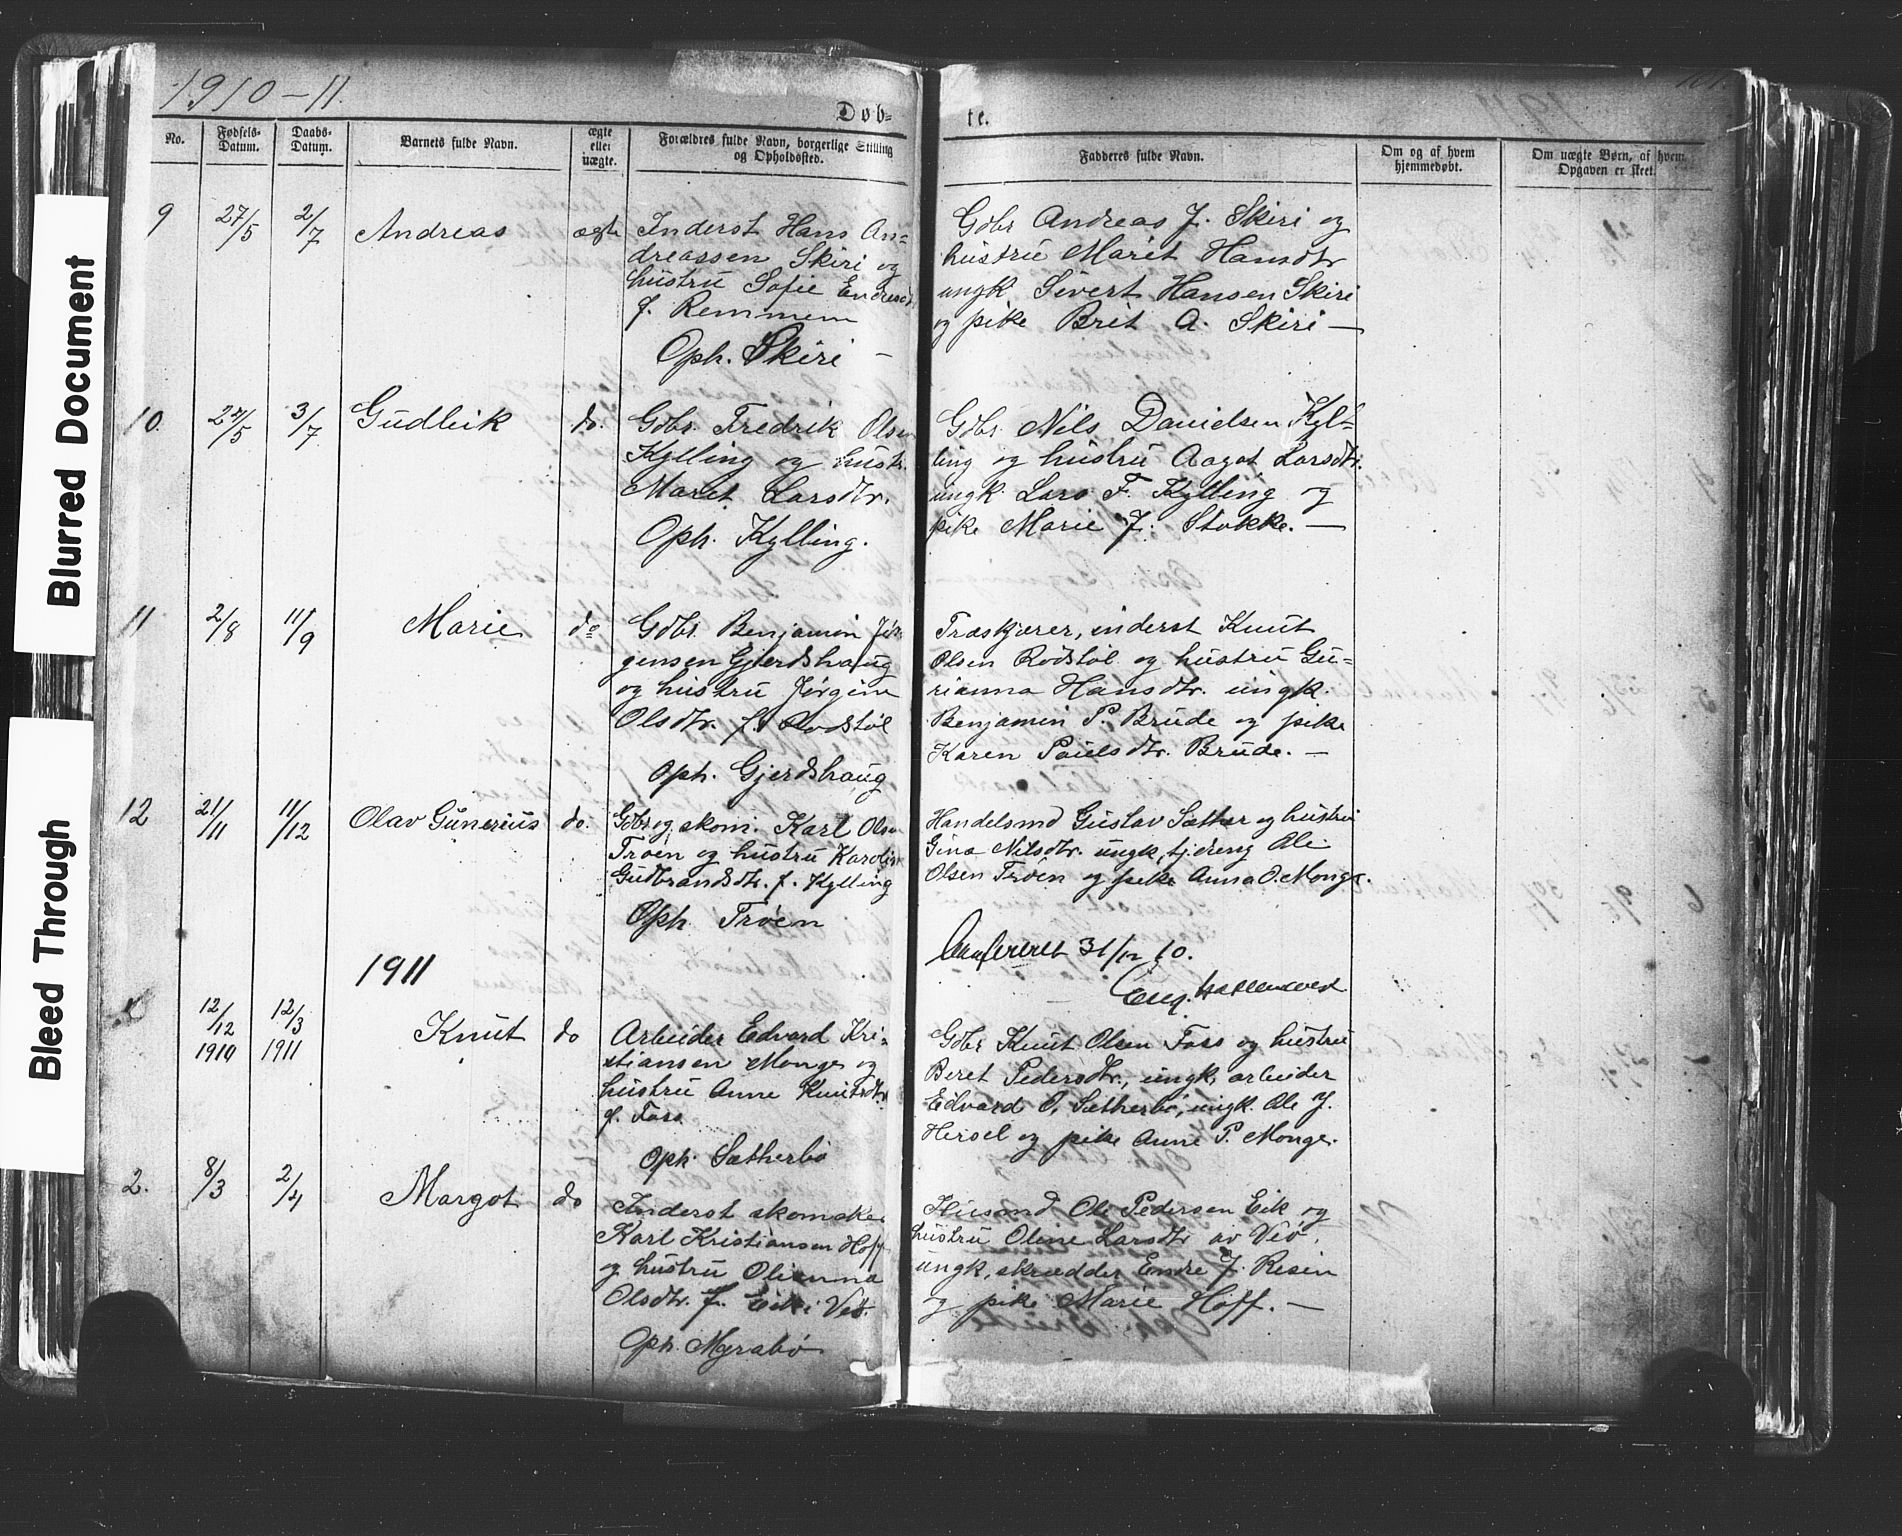 1910-11.
Døb-
te.
No.
Fødsels-
Datum.
Daabs-
Datum.
Barnets fulde Navn.
ægte
eller
uægte.
Forældres fulde Navn, borgerlige Stilling
og Opholdsted.
Faddernes fulde Navn.
Om og af hvem
hjemmedøbt.
Om uægte Børn, af hvem
Opgaven er skeet.
Blurred Document
Bleed Through
9 27/5 2/7 Andreas ægte
Inderst Hans An=
dreassen Skiri og
hustru Sofie Endresdt
f. Remmem
Oph. Skiri -
Gdbr Andreas J. Skiri og
hustru Marit Hansdtr
ungk Sivert Hansen Skiri
og pike Brit A. Skiri —
10. 27/5 3/7 Gudleik do.
Gdbr. Fredrik Olsen
Kylling og hustr.
Maret Larsdtr.
Oph. Kylling.
Gdbr. Nils Danielsen Kyl-
ling og hustru Aagot Larsdtr.
ungk. Lars F. Kylling og
pike Marie J. Stokke. —
11 2/8 11/9 Marie do
Gdbr. Benjamin Jør
gensen Gjerdshaug
og hustru Jørgine
Olsdtr. f. Rødstøl
Oph. Gjerdshaug
Træskjærer, inderst Knut
Olsen Rødstøl og hustru Gu=
rianna Hansdtr. ungk.
Benjamin P. Brude og pike
Karen Paulsdtr. Brude. —
12 21/11 11/12 Olav Gunerius do.
Gdbr og skom. Karl Olsen
Trøen og hustru Karolin
Gudbrandsdtr. f. Kylling
Oph. Trøen
Handelsmd Gustav Sæther og hustru
Gina Nilsdtr. ungk, tjdreng Ole
Olsen Trøen og pike Anna O. Monge.
Confereret 31/12 10.
1911
12/12 1910 12/3 1911 Knut do
Arbeider Edvard Kri-
stiansen Monge og
hustru Anne Knutsdtr
f. Foss
Oph. Sætherbø
Gdbr Knut Olsen Foss og hustru
Beret Pedersdtr., ungk. arbeider
Edvard O. Sætherbø, ungk. Ole J.
Hersel og pike Anne P. Monge.
2. 8/3 2/4 Margot do
Inderst skomaker
Karl Kristiansen Hoff
og hustru Olianna
Olsdtr. f. Eik i Veø.
Oph. Myrabø
Husmd Ole Pedersen Eik og
hustru Oline Larsdtr av Veø,
ungk, skrædder Endre J. Risin
og pike Marie Hoff. —